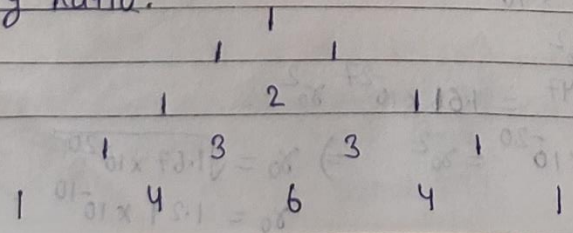 1
1 1
1 2 1
1 3 3 1
1 4 6 4 1